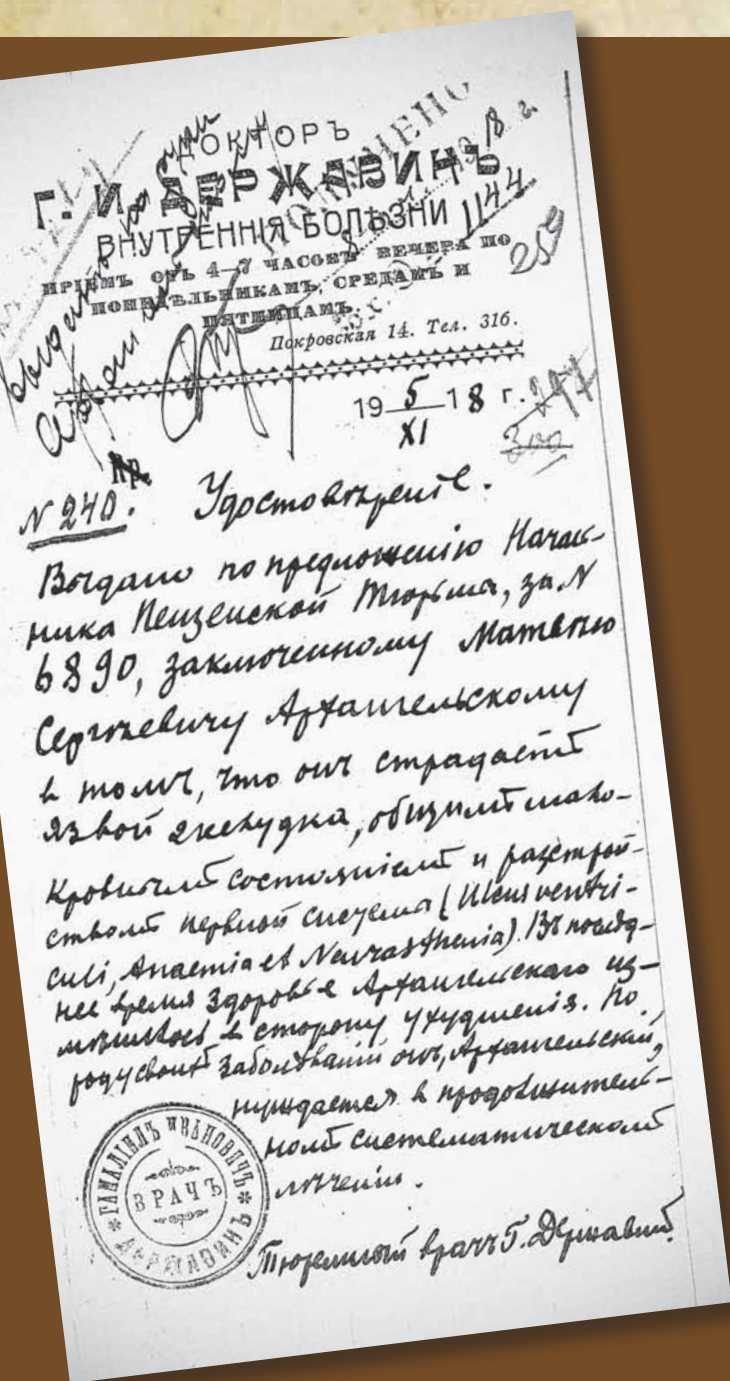 ДОКТОРЪ
Г. И. ДЕРЖАВИНЪ
ВНУТРЕННІЯ БОЛѢЗНИ
ПРІЕМЪ ОТЪ 4—7 ЧАСОВЪ ВЕЧЕРА ПО
ПОНЕДѢЛЬНИКАМЪ, СРЕДАМЪ И
ПЯТНИЦАМЪ.
Покровская 14. Тел. 316.
1144
259
19 5/XI 18 г.
297
300
N 240. Удостовѣреніе.
Выдано по предложенію Началь-
ника Пензенской Тюрьмы, за N
6890, заключенному Матвѣю
Сергѣевичу Архангельскому
в томъ, что онъ страдаетъ
язвой желудка, общимъ мало-
кровнымъ состояніемъ и разстрой-
ствомъ нервной системы (Ulcus ventri-
culi, Anaemia et Neurasthenia). Въ послѣд-
нее время здоровье Архангельскаго из-
мѣнилось в сторону ухудшенія. По
роду своихъ заболѣваній онъ, Архангельскій,
нуждается в продолжитель-
номъ систематическомъ
лѣченіи.
ГАМАЛІИЛЪ ИВАНОВИЧЪ
ВРАЧЪ
ДЕРЖАВИНЪ
Тюремный врачъ Г. Державинъ